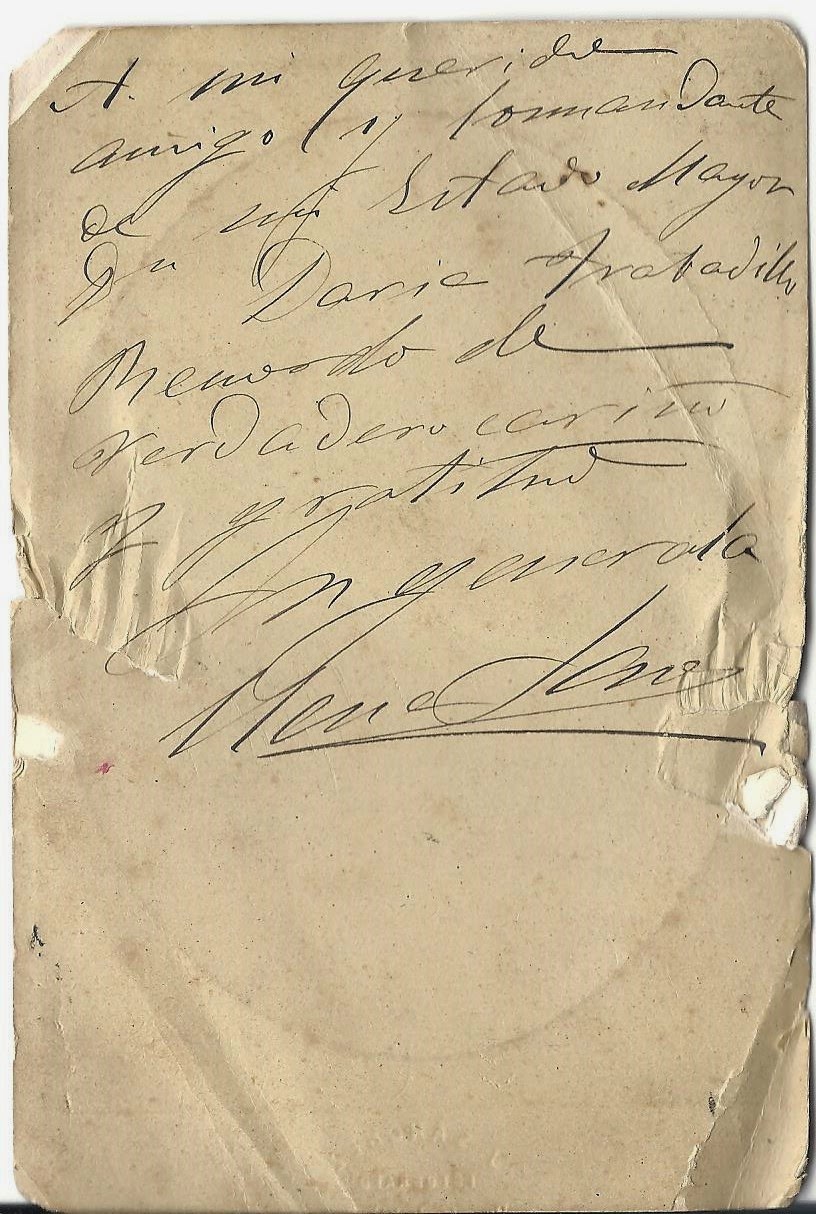 A. mi querido
amigo (y Commandante
de mi Estado Mayor
Dn Dario Frabadillo
Recuerdo de
verdadero cariño
y gratitud
Su generala
Elena Sanz